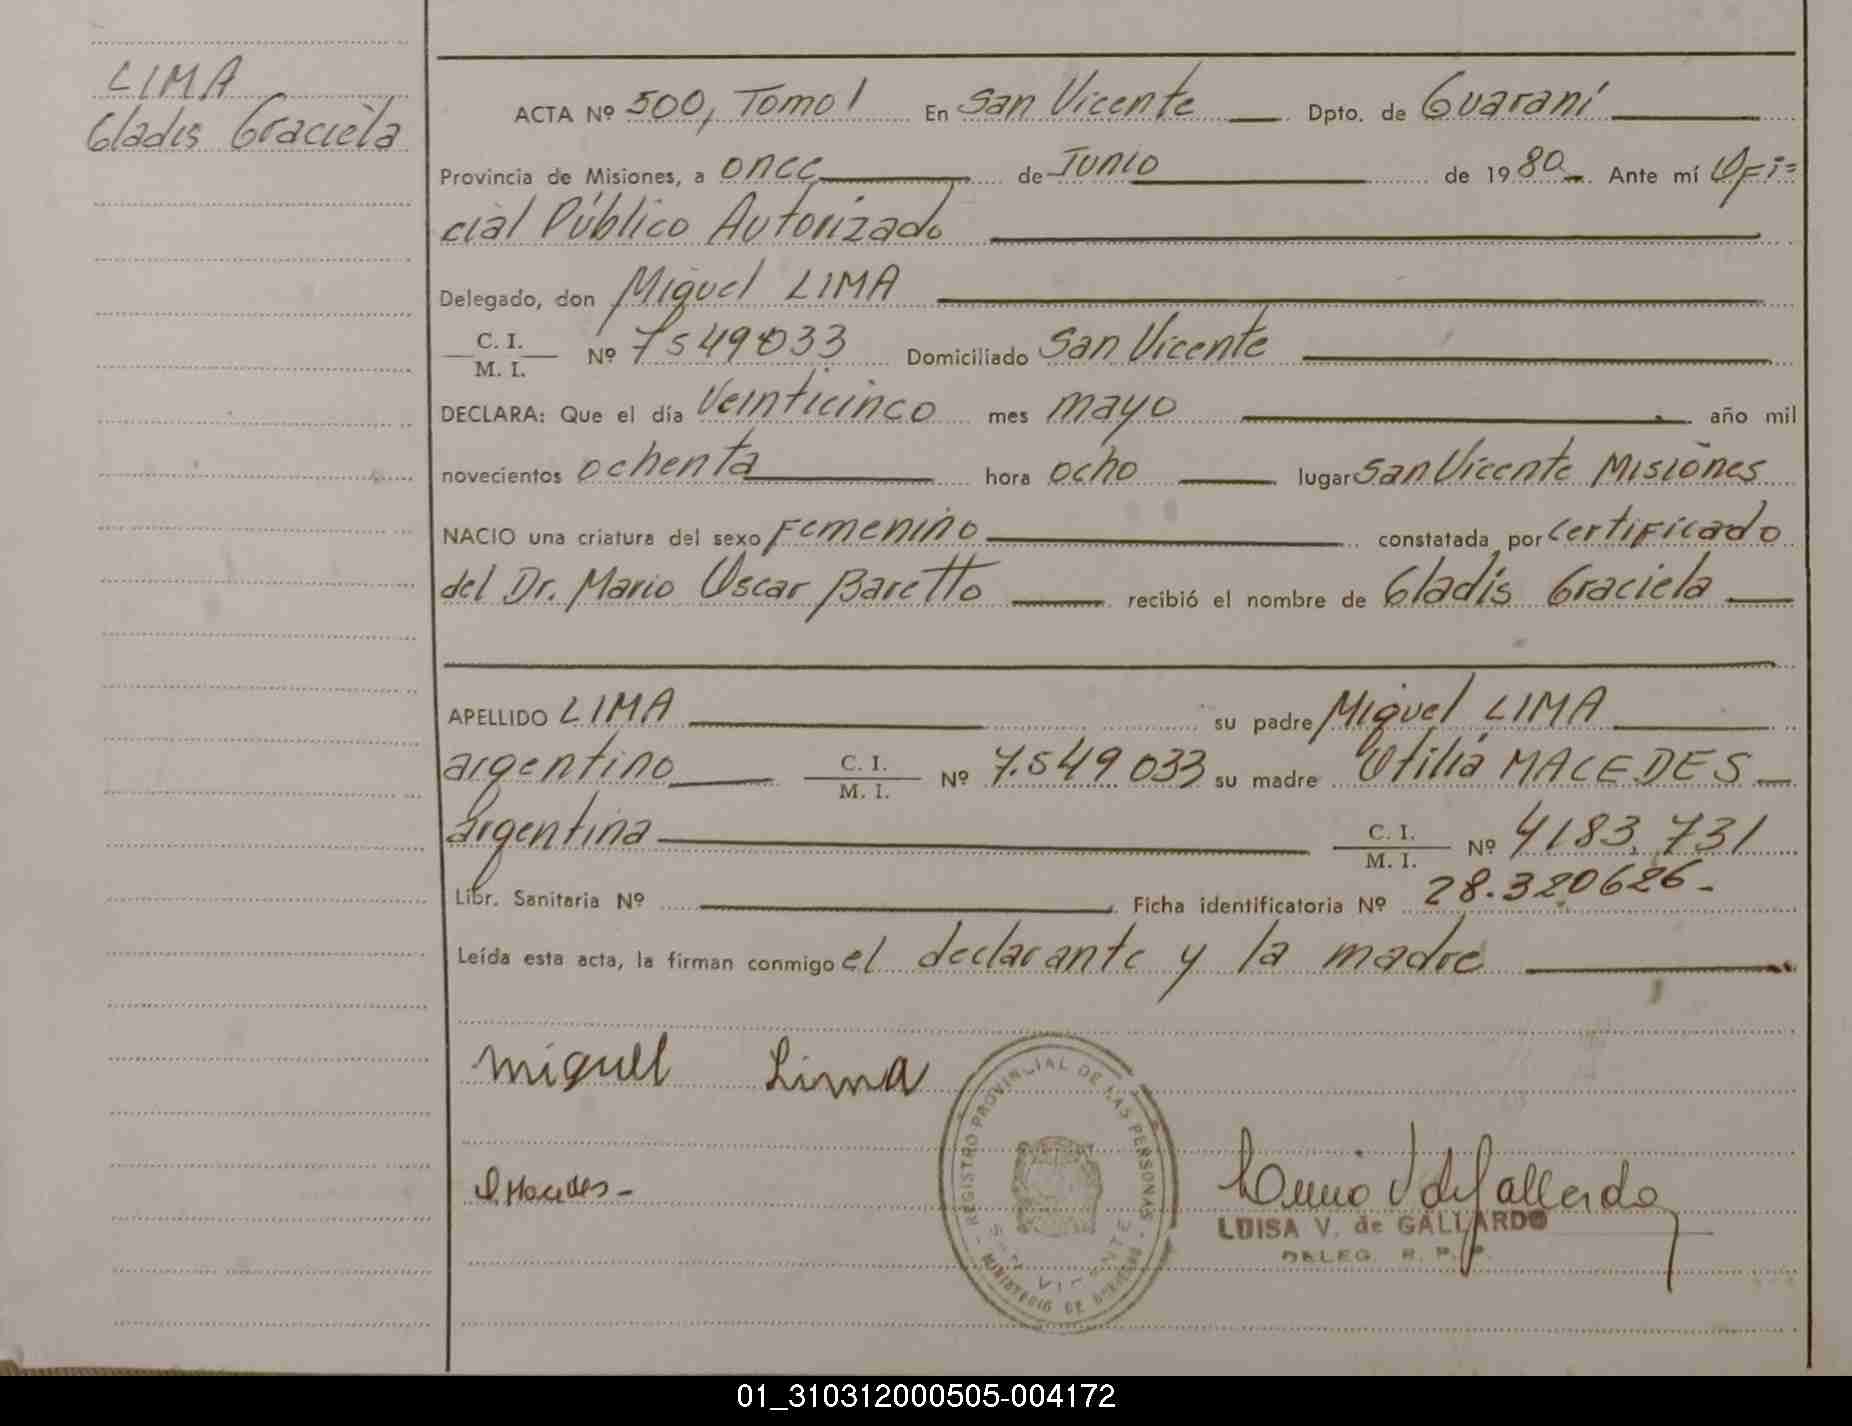 LIMA
Gladis Graciela
ACTA Nº 500, Tomo I En San Vicente Dpto. de Guaraní
Provincia de Misiones, a once de Junio de 1980 Ante mí Ofi=
cial Público Autorizado
Delegado, don Miguel LIMA
C. I.
M. I.
Nº 7549033 Domiciliado San Vicente
DECLARA: Que el día Veinticinco mes mayo año mil
novecientos ochenta hora ocho lugar San Vicente Misiones
NACIO una criatura del sexo Femenino constatada por certificado
del Dr. Mario Oscar Baretto recibió el nombre de Gladis Graciela
APELLIDO LIMA su padre Miguel LIMA
argentino C. I. M. I. Nº 7.549.033 su madre Otilia MACEDES
argentina C. I. M. I. Nº 4183.731
Libr. Sanitaria Nº Ficha identificatoria Nº 28.320626-
Leída esta acta, la firman conmigo el declarante y la madre
Miguel Lima
O Macedes-
REGISTRO PROVINCIAL DE LAS PERSONAS
SAN VICENTE
MINISTERIO DE GOBIERNO
LUISA V. de GALLARDO
DELEG. R. P. P.
01_310312000505-004172